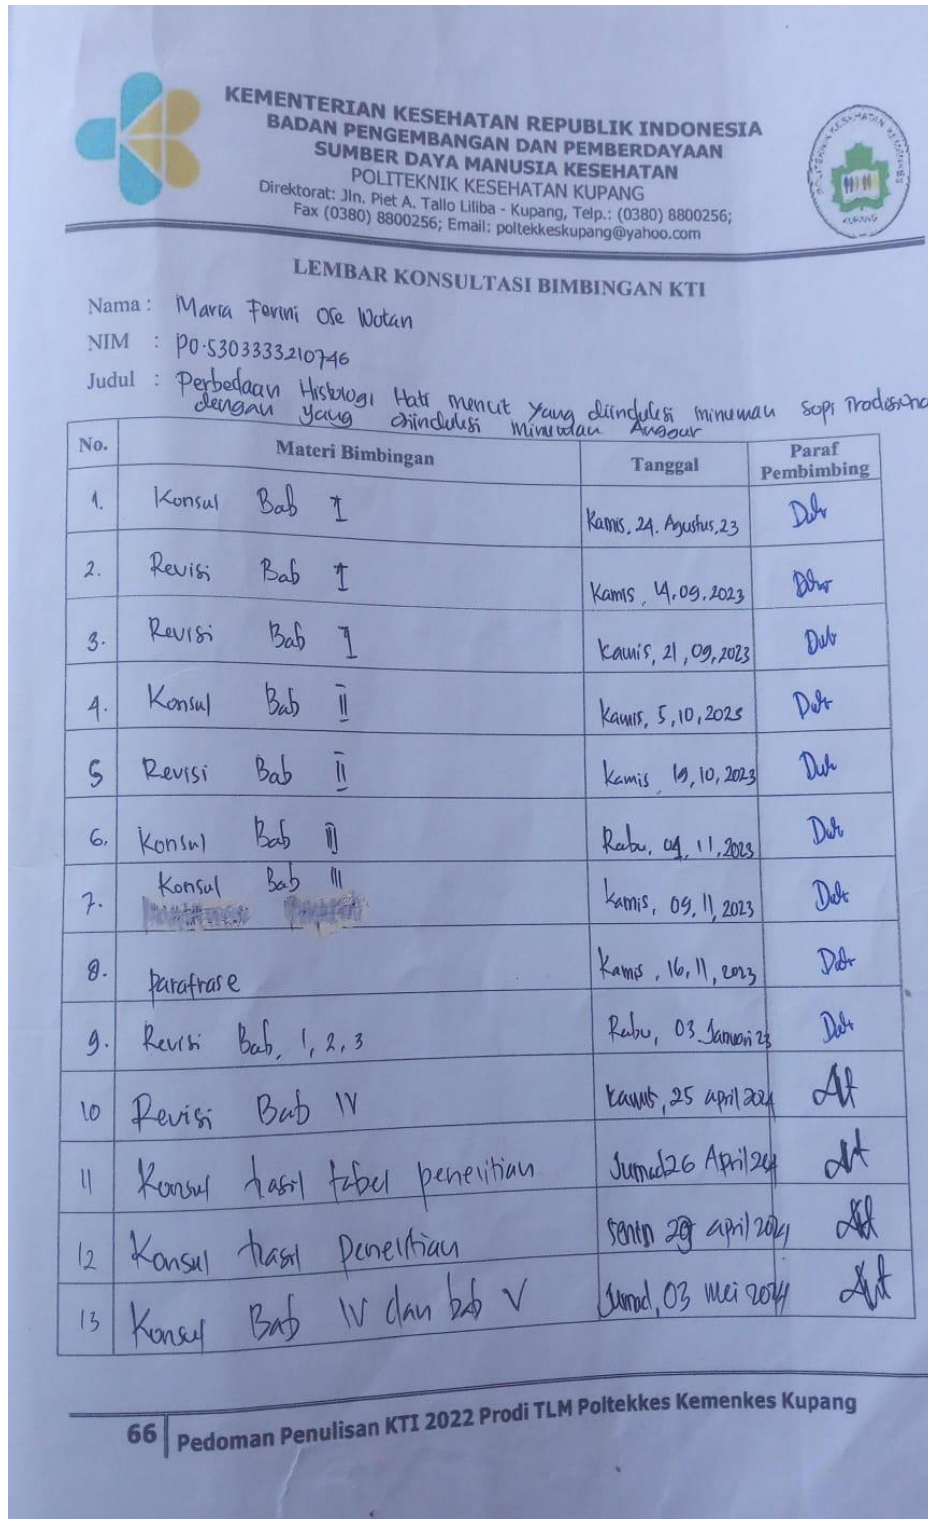 KEMENTERIAN KESEHATAN REPUBLIK INDONESIA
BADAN PENGEMBANGAN DAN PEMBERDAYAAN
SUMBER DAYA MANUSIA KESEHATAN
POLITEKNIK KESEHATAN KUPANG
Direktorat: Jln. Piet A. Tallo Liliba - Kupang, Telp.: (0380) 8800256;
Fax (0380) 8800256; Email: poltekkeskupang@yahoo.com
POLITEKNIK KESEHATAN KEMENKES
KUPANG
LEMBAR KONSULTASI BIMBINGAN KTI
Nama : Maria Ferini Ose Wotan
NIM : PO.5303333210746
Judul : Perbedaan Histologi Hati mencit yang diinduksi minuman sopi Tradisiona
dengan yang diinduksi minuman Anggur
No. Materi Bimbingan Tanggal Paraf Pembimbing
1. Konsul Bab I Kamis, 24. Agustus, 23
2. Revisi Bab I Kamis, 14.09.2023
3. Revisi Bab I Kamis, 21,09,2023
4. Konsul Bab II Kamis, 5,10,2023
5 Revisi Bab II Kamis 19,10,2023
6. Konsul Bab II Rabu, 11,2023
7. Konsul Bab III Kamis, 09,11,2023
8. Parafrase Kamis, 16,11,2023
9. Revisi Bab, 1,2,3 Rabu, 03 Januari 23
10 Revisi Bab IV Kamis, 25 april 2024
11 Konsul hasil tabel penelitian Jumad 26 April 24
12 Konsul hasil Penelitian Senin 29 april 2024
13 Konsul Bab IV dan bab V Jumad, 03 mei 2024
66 Pedoman Penulisan KTI 2022 Prodi TLM Poltekkes Kemenkes Kupang